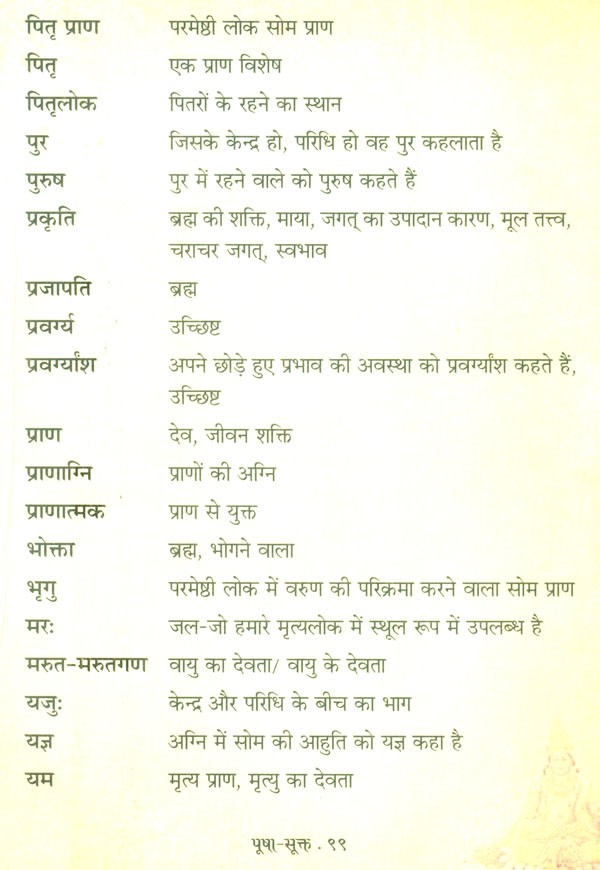 पितृ प्राण परमेष्ठी लोक सोम प्राण
पितृ एक प्राण विशेष
पितृलोक पितरों के रहने का स्थान
पुर जिसके केन्द्र हो, परिधि हो वह पुर कहलाता है
पुरुष पुर में रहने वाले को पुरुष कहते हैं
प्रकृति ब्रह्म की शक्ति, माया, जगत् का उपादान कारण, मूल तत्त्व,
चराचर जगत्, स्वभाव
प्रजापति ब्रह्म
प्रवर्ग्य उच्छिष्ट
प्रवर्ग्यांश अपने छोड़े हुए प्रभाव की अवस्था को प्रवर्ग्यांश कहते हैं,
उच्छिष्ट
प्राण देव, जीवन शक्ति
प्राणाग्नि प्राणों की अग्नि
प्राणात्मक प्राण से युक्त
भोक्ता ब्रह्म, भोगने वाला
भृगु परमेष्ठी लोक में वरुण की परिक्रमा करने वाला सोम प्राण
मरः जल-जो हमारे मृत्यलोक में स्थूल रूप में उपलब्ध है
मरुत-मरुतगण वायु का देवता/ वायु के देवता
यजुः केन्द्र और परिधि के बीच का भाग
यज्ञ अग्नि में सोम की आहुति को यज्ञ कहा है
यम मृत्य प्राण, मृत्यु का देवता
पूषा-सूक्त . ९९